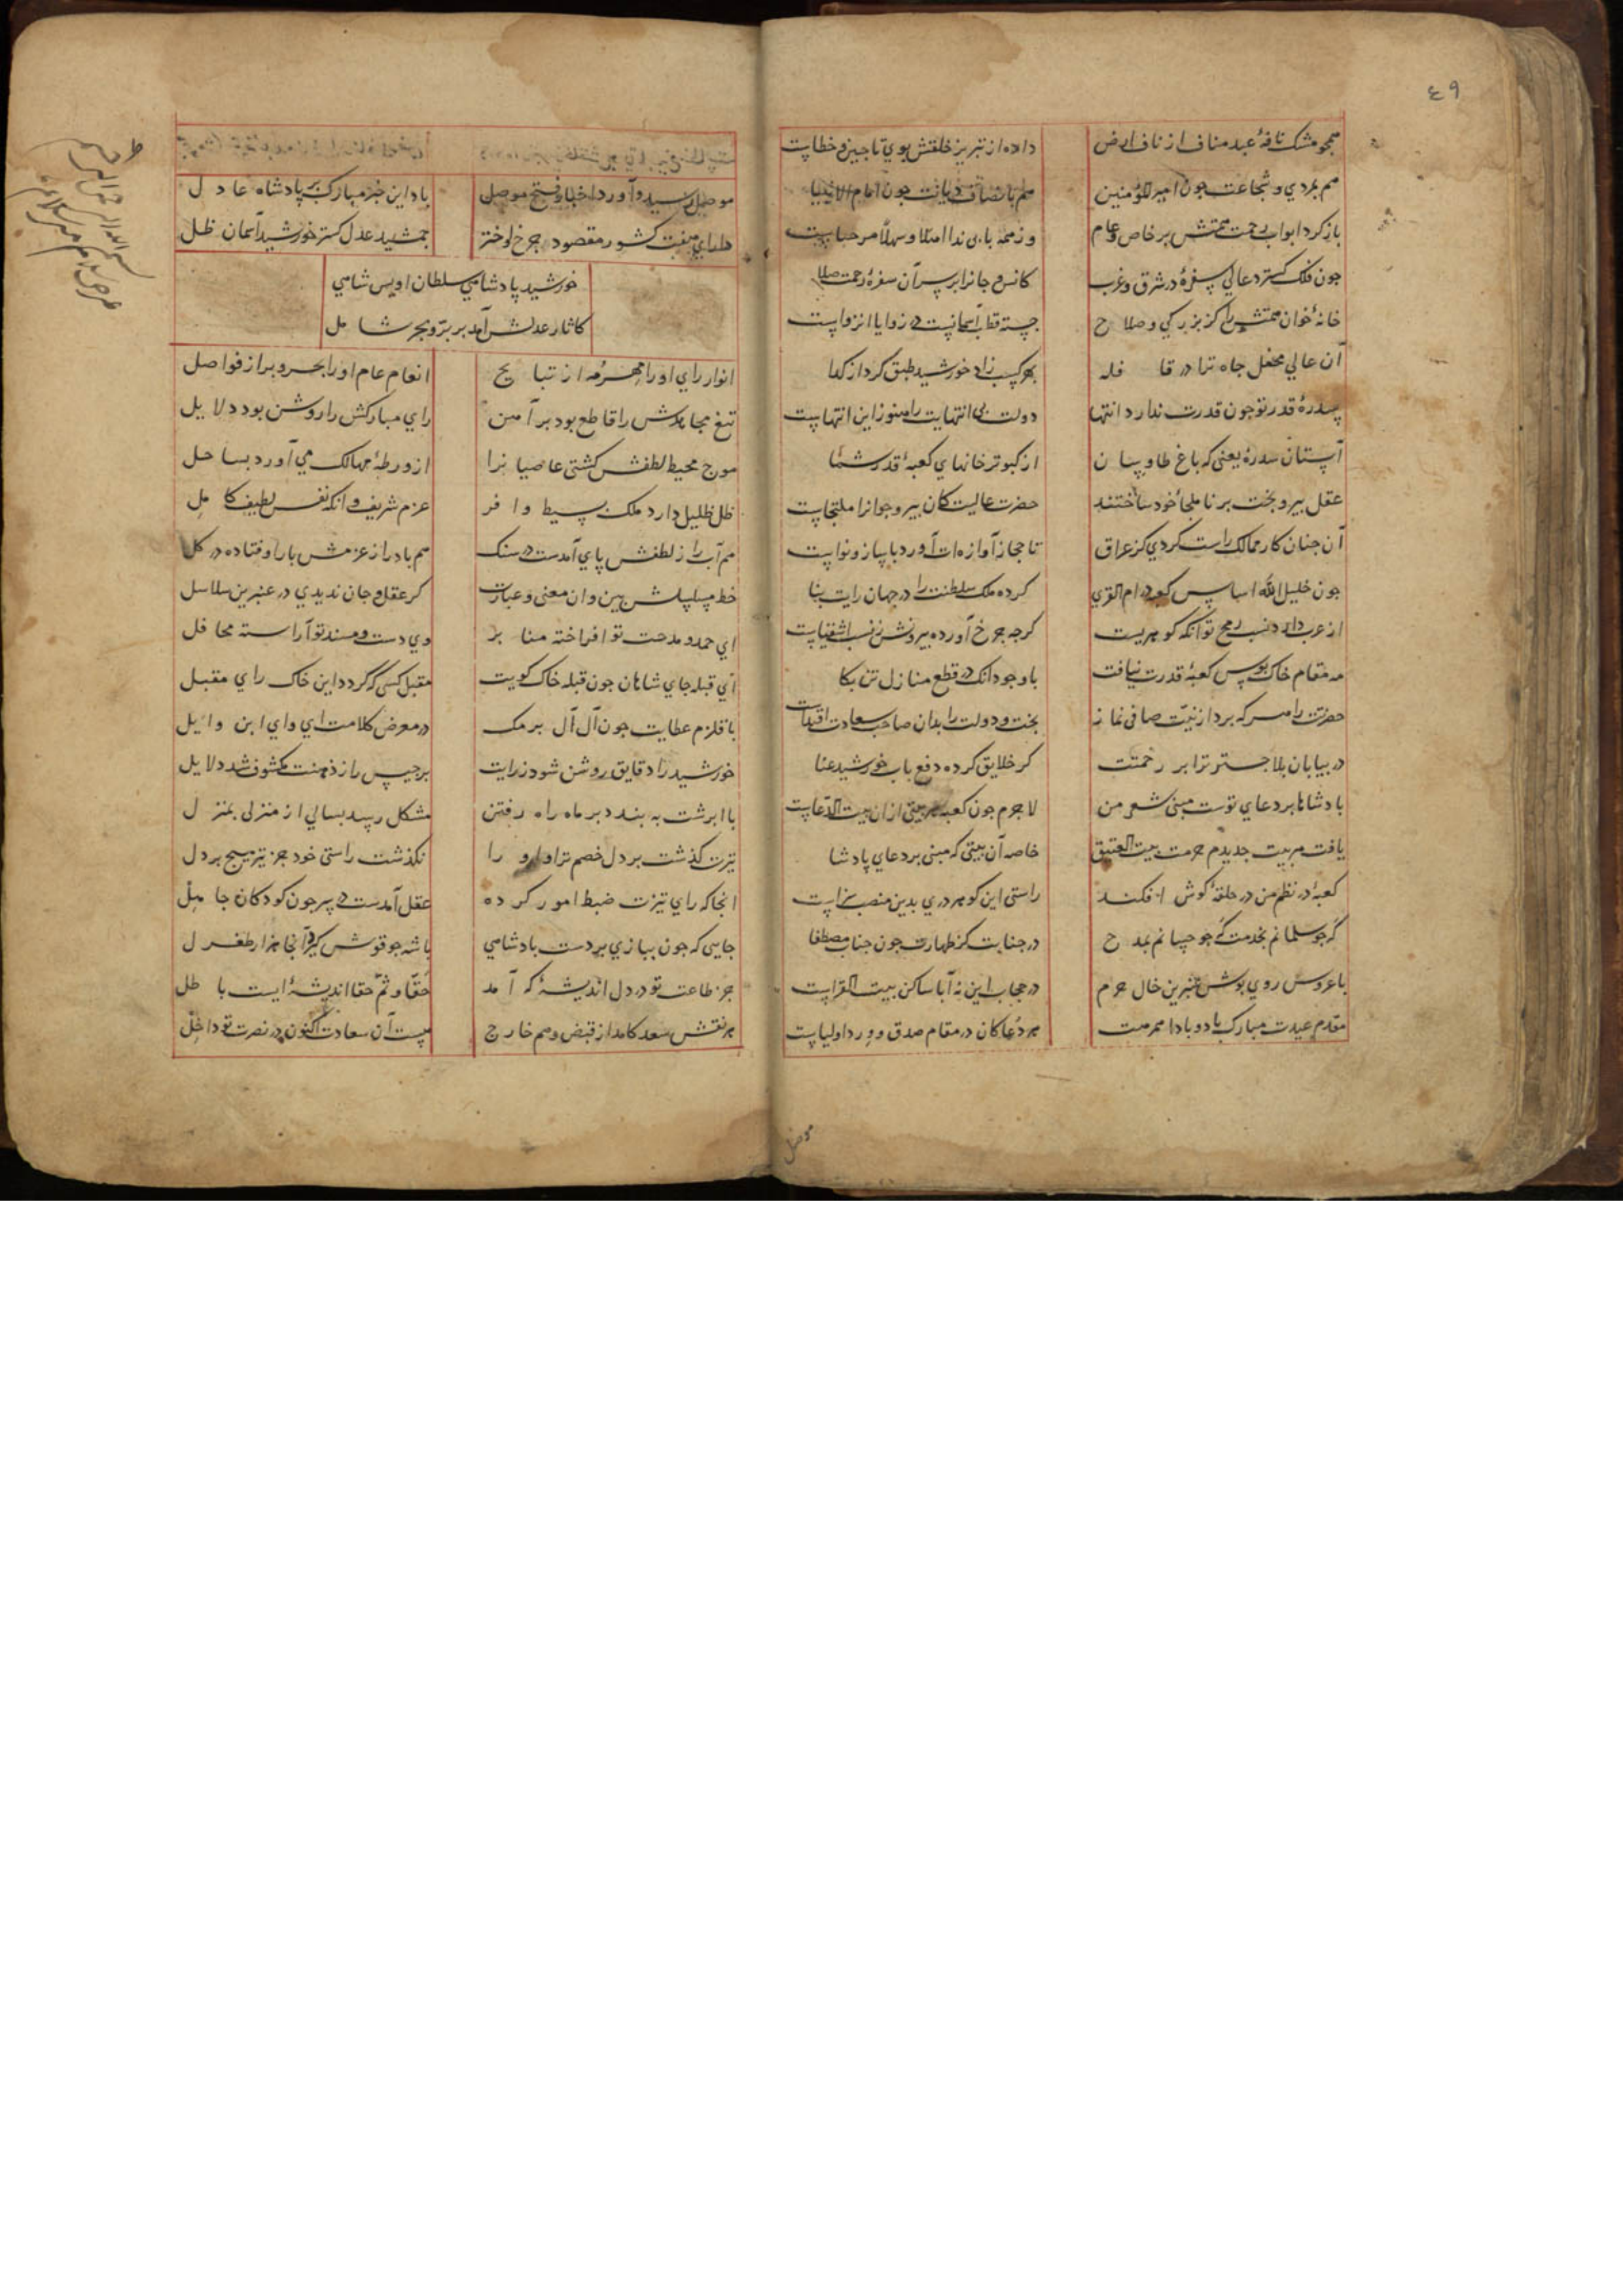 ٤٩
همچو مشک نافهٔ عبد مناف از ناف ارض داده از تبریز خلقش بوی تا چین و خطاست
هم بمردی و شجاعت چون امیر المؤمنین هم بانصاف و دیانت چون امام الانبیا
باز کرد ابواب رحمت همتش بر خاص و عام وز همه بابی ندا اهلا و سهلا مرحباست
جون فلک کسترد عالی سفرهٔ در شرق و غرب کانس و جانرا بر سر آن سفرهٔ رحمت صلا
خانهٔ خوان همتش را کز بزرکی و صلاح جسته قطب آسمانیست در زوایا انزواست
آن عالی محفل جاه ترا در قافله بهر کسب زاد خورشید طبق کرد از کدا
سدرهٔ قدر تو جون قدرت ندارد انتها دولت بی انتهایت را هنوز این انتهاست
آستان سدرهٔ یعنی که باغ طاوسان از کبوتر خانهای کعبهٔ قدر شما
عقل پیر و بخت برنا ملجأ خود ساختند حضرت عالیت کان پیر و جوانرا ملتجاست
آن جنان کار ممالک راست کردی کز عراق تا حجاز آوازه‌ات آورد با ساز و نواست
جون خلیل الله اساس کعبه در ام القری کرده ملک سلطنت را در جهان رایت بنا
از عرب دارد نسب رمح تو آنکه کوهریست کرجه جرخ آورده بیرونش ز نسب اشقیاست
مه مقام خاک بوس کعبهٔ قدرت نیافت با وجود آنک در قطع منازل شد بکا
حضرتت را هر که برد از نیت صافی نماز بخت و دولت را بدان صاحب سعادت اقتداست
در بیابان بلا جستر ترا بر رحمتت کز خلایق کرده دفع باب خورشید عنا
بادشاها بر دعای توست مبنی شعر من لاجرم جون کعبه هر بیتی ازان بیت الدعاست
یافت هر بیت جدیدم حرمت بیت العتیق خاصه آن بیتی که مبنی بر دعای پادشا
کعبهٔ در نظم من در حلقهٔ کوش افکند راستی این کوهر دری بدین منصب سزاست
کر جو سلمانم بخدمت که جو حسانم بمدح در جنابت کز طهارت جون جناب مصطفا
با عروس روی پوش عنبرین خال حرم در حجاب این نه آبا ساکن بیت القراست
مقدم عیدت مبارک باد و بادا همرهت هر دعا کان در مقام صدق و ورد اولیاست
موصل
موصل رسید و آورد اخبار فتح موصل باد این خبر مبارک بر پادشاه عادل
دارای هفت کشور مقصود جرخ و اختر جمشید عدل کستر خورشید آسمان ظل
خورشید پادشاهی سلطان اویس شاهی
کاثار عدلش آمد بر بر و بحر شامل
انوار رای او را مهر و مه از نتایج انعام عام او را بحر و بر از فواصل
تیغ مجاهدش را قاطع بود براهین رای مبارکش را روشن بود دلایل
موج محیط لطفش کشتی عاصیانرا از ورطهٔ مهالک می آورد بساحل
ظل ظلیل دارد ملک بسیط وافر عزم شریف و آنکه نفس لطیف کامل
هم آب را ز لطفش پای آمدست در سنک هم باد را ز عزمش بار اوفتاده در کل
خط مسلسلش بین وان معنی و عبارت کر عقل و جان ندیدی در عنبرین سلاسل
ای حمد و مدحت تو افراخته منابر وی دست و مسند تو آراسته محافل
ای قبله جای شاهان جون قبله خاک کویت مقبل کسی که کردد این خاک رای مقبل
با قلزم عطایت جون آل آل برمک در معرض کلامت ای وای ابن وایل
خورشید را دقایق روشن شود ز رایت برجیس را ز ذهنت مکشوف شد دلایل
با ابرشت به بندد بر ماه راه رفتن مشکل رسد بسالی از منزلی بمنزل
تیرت کذشت بر دل خصم ترا و او را نکذشت راستی خود جز تیر هیج بر دل
انجا که رای تیزت ضبط امور کرده عقل آمدست در سر جون کودکان جاهل
جایی که جون ببازی بر دست بادشاهی باشه جو قوش کیرد آنجا هزار طغرل
جز طاعت تو در دل اندیشهٔ که آمد حقا و ثم حقا اندیشهٔ ایست باطل
هر نقش سعد کامد از قبض وهم خارج هست آن سعادت اکنون در نصرت تو داخل
بسم الله الرحمن الرحیم